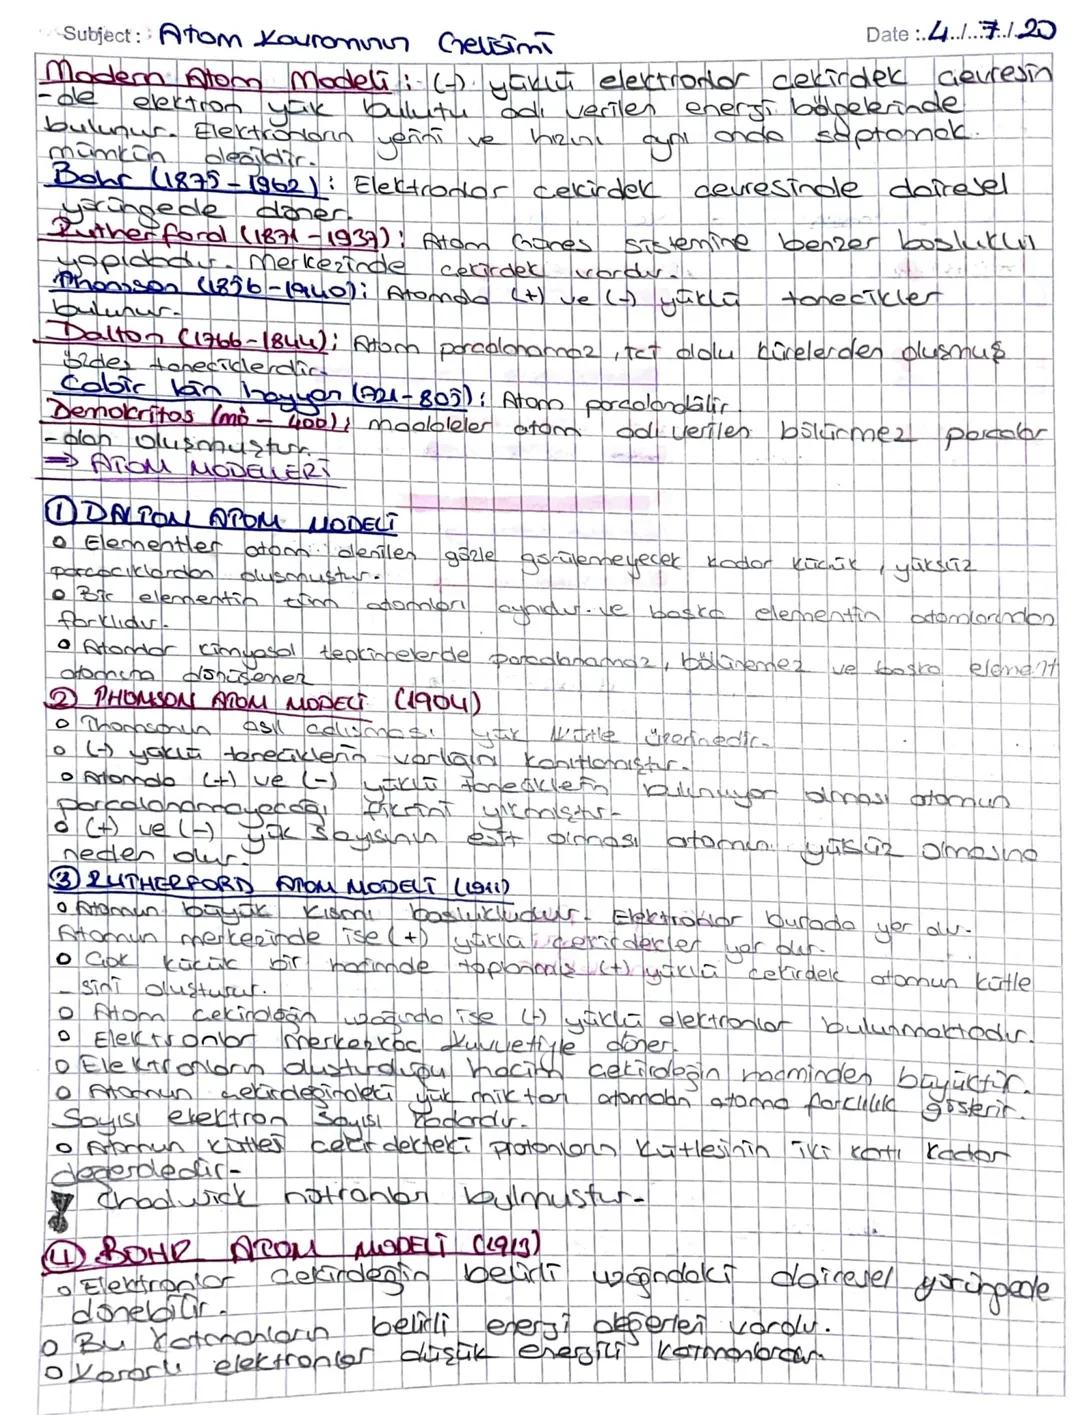 Subject: Atom Kavramının Gelişimi Date: 4/7/20
Modern Atom Modeli: (-) yüklü elektronlar çekirdek çevresin
-de elektron yük bulutu adı verilen enerji bölgelerinde
bulunur. Elektronların yerini ve hızını aynı anda saptamak
mümkün değildir.
Bohr (1875-1962): Elektronlar çekirdek çevresinde dairesel
yörüngede döner.
Rutherford (1871-1937): Atom Güneş sistemine benzer boşluklu
yapıdadır. Merkezinde çekirdek vardır.
Thomson (1856-1940): Atomda (+) ve (-) yüklü tanecikler
bulunur.
Dalton (1766-1844): Atom parçalanamaz, içi dolu kürelerden oluşmuş
taneciklerdir.
Cabir bin hayyan (721-805): Atom parçalanabilir.
Demokritos (mö-400): maddeler atom adı verilen bölünmez parçalar
-dan oluşmuştur.
⇒ ATOM MODELLERİ
① DALTON ATOM MODELİ
o Elementler atom denilen gözle görülemeyecek kadar küçük, yüksüz
parçacıklardan oluşmuştur.
o Bir elementin tüm atomları aynıdır. ve başka elementin atomlarından
farklıdır.
o Atomlar kimyasal tepkimelerde parçalanamaz, bölünemez ve başka element
atomuna dönüşemez
② THOMSON ATOM MODELİ (1904)
o Thomsonun asıl çalışması yük kütle üzerinedir.
o (-) yüklü taneciklerin varlığını kanıtlamıştır.
o Atomda (+) ve (-) yüklü taneciklerin bulunuyor olması atomun
parçalanamayacağı fikrini yıkmıştır.
o (+) ve (-) yük sayısının eşit olması atomun yüksüz olmasına
neden olur.
③ RUTHERFORD ATOM MODELİ (1911)
o Atomun büyük kısmı boşlukludur. Elektronlar burada yer alır.
Atomun merkezinde ise (+) yüklü çekirdekler yer alır.
o Çok küçük bir hacimde toplanmış (+) yüklü çekirdek atomun kütle
-sini oluşturur.
o Atom çekirdeğin uzağında ise (-) yüklü elektronlar bulunmaktadır.
o Elektronlar merkezkaç kuvvetiyle döner.
o Elektronların oluşturduğu hacim çekirdeğin hacminden büyüktür.
o Atomun çekirdeğindeki yük miktarı atomdan atoma farklılık gösterir.
Sayısı elektron sayısı kadardır.
o Atomun kütlesi çekirdekteki protonların kütlesinin iki katı kadar
değerdedir-
Chadwick nötronları bulmuştur-
④ BOHR ATOM MODELİ (1913)
o Elektronlar çekirdeğin belirli uzağındaki dairesel yörüngede
dönebilir.
o Bu katmanların belirli enerji değerleri vardır.
o Kararlı elektronlar düşük enerjili katmanlardan